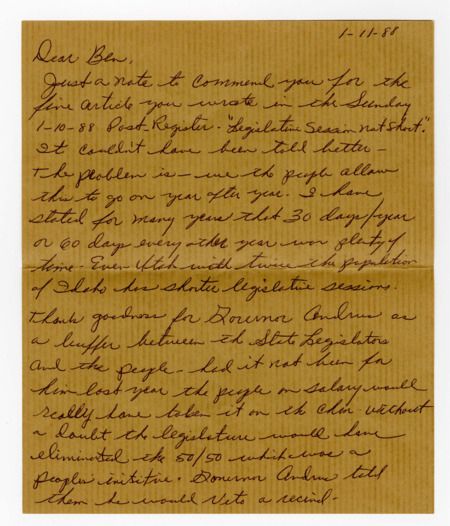 1-11-88
Dear Ben,
Just a note to commend you for the
fine article you wrote in the Sunday
1-10-88 Post-Register. "Legislative Session Not Short."
It couldn't have been told better -
The problem is - we the people allow
this to go on year after year. I have
stated for many years that 30 days/year
or 60 days every other year was plenty of
time. Even Utah with twice the population
of Idaho has shorter legislative sessions.
Thank goodness for Governor Andrus as
a buffer between th State Legislators
and the people - had it not been for
him last year the people on salary would
really have taken it on the chin. Without
a doubt the legislature would have
eliminated the 50/50 which was a
peoples inititive. Governor Andrus told
them he would veto a recind-